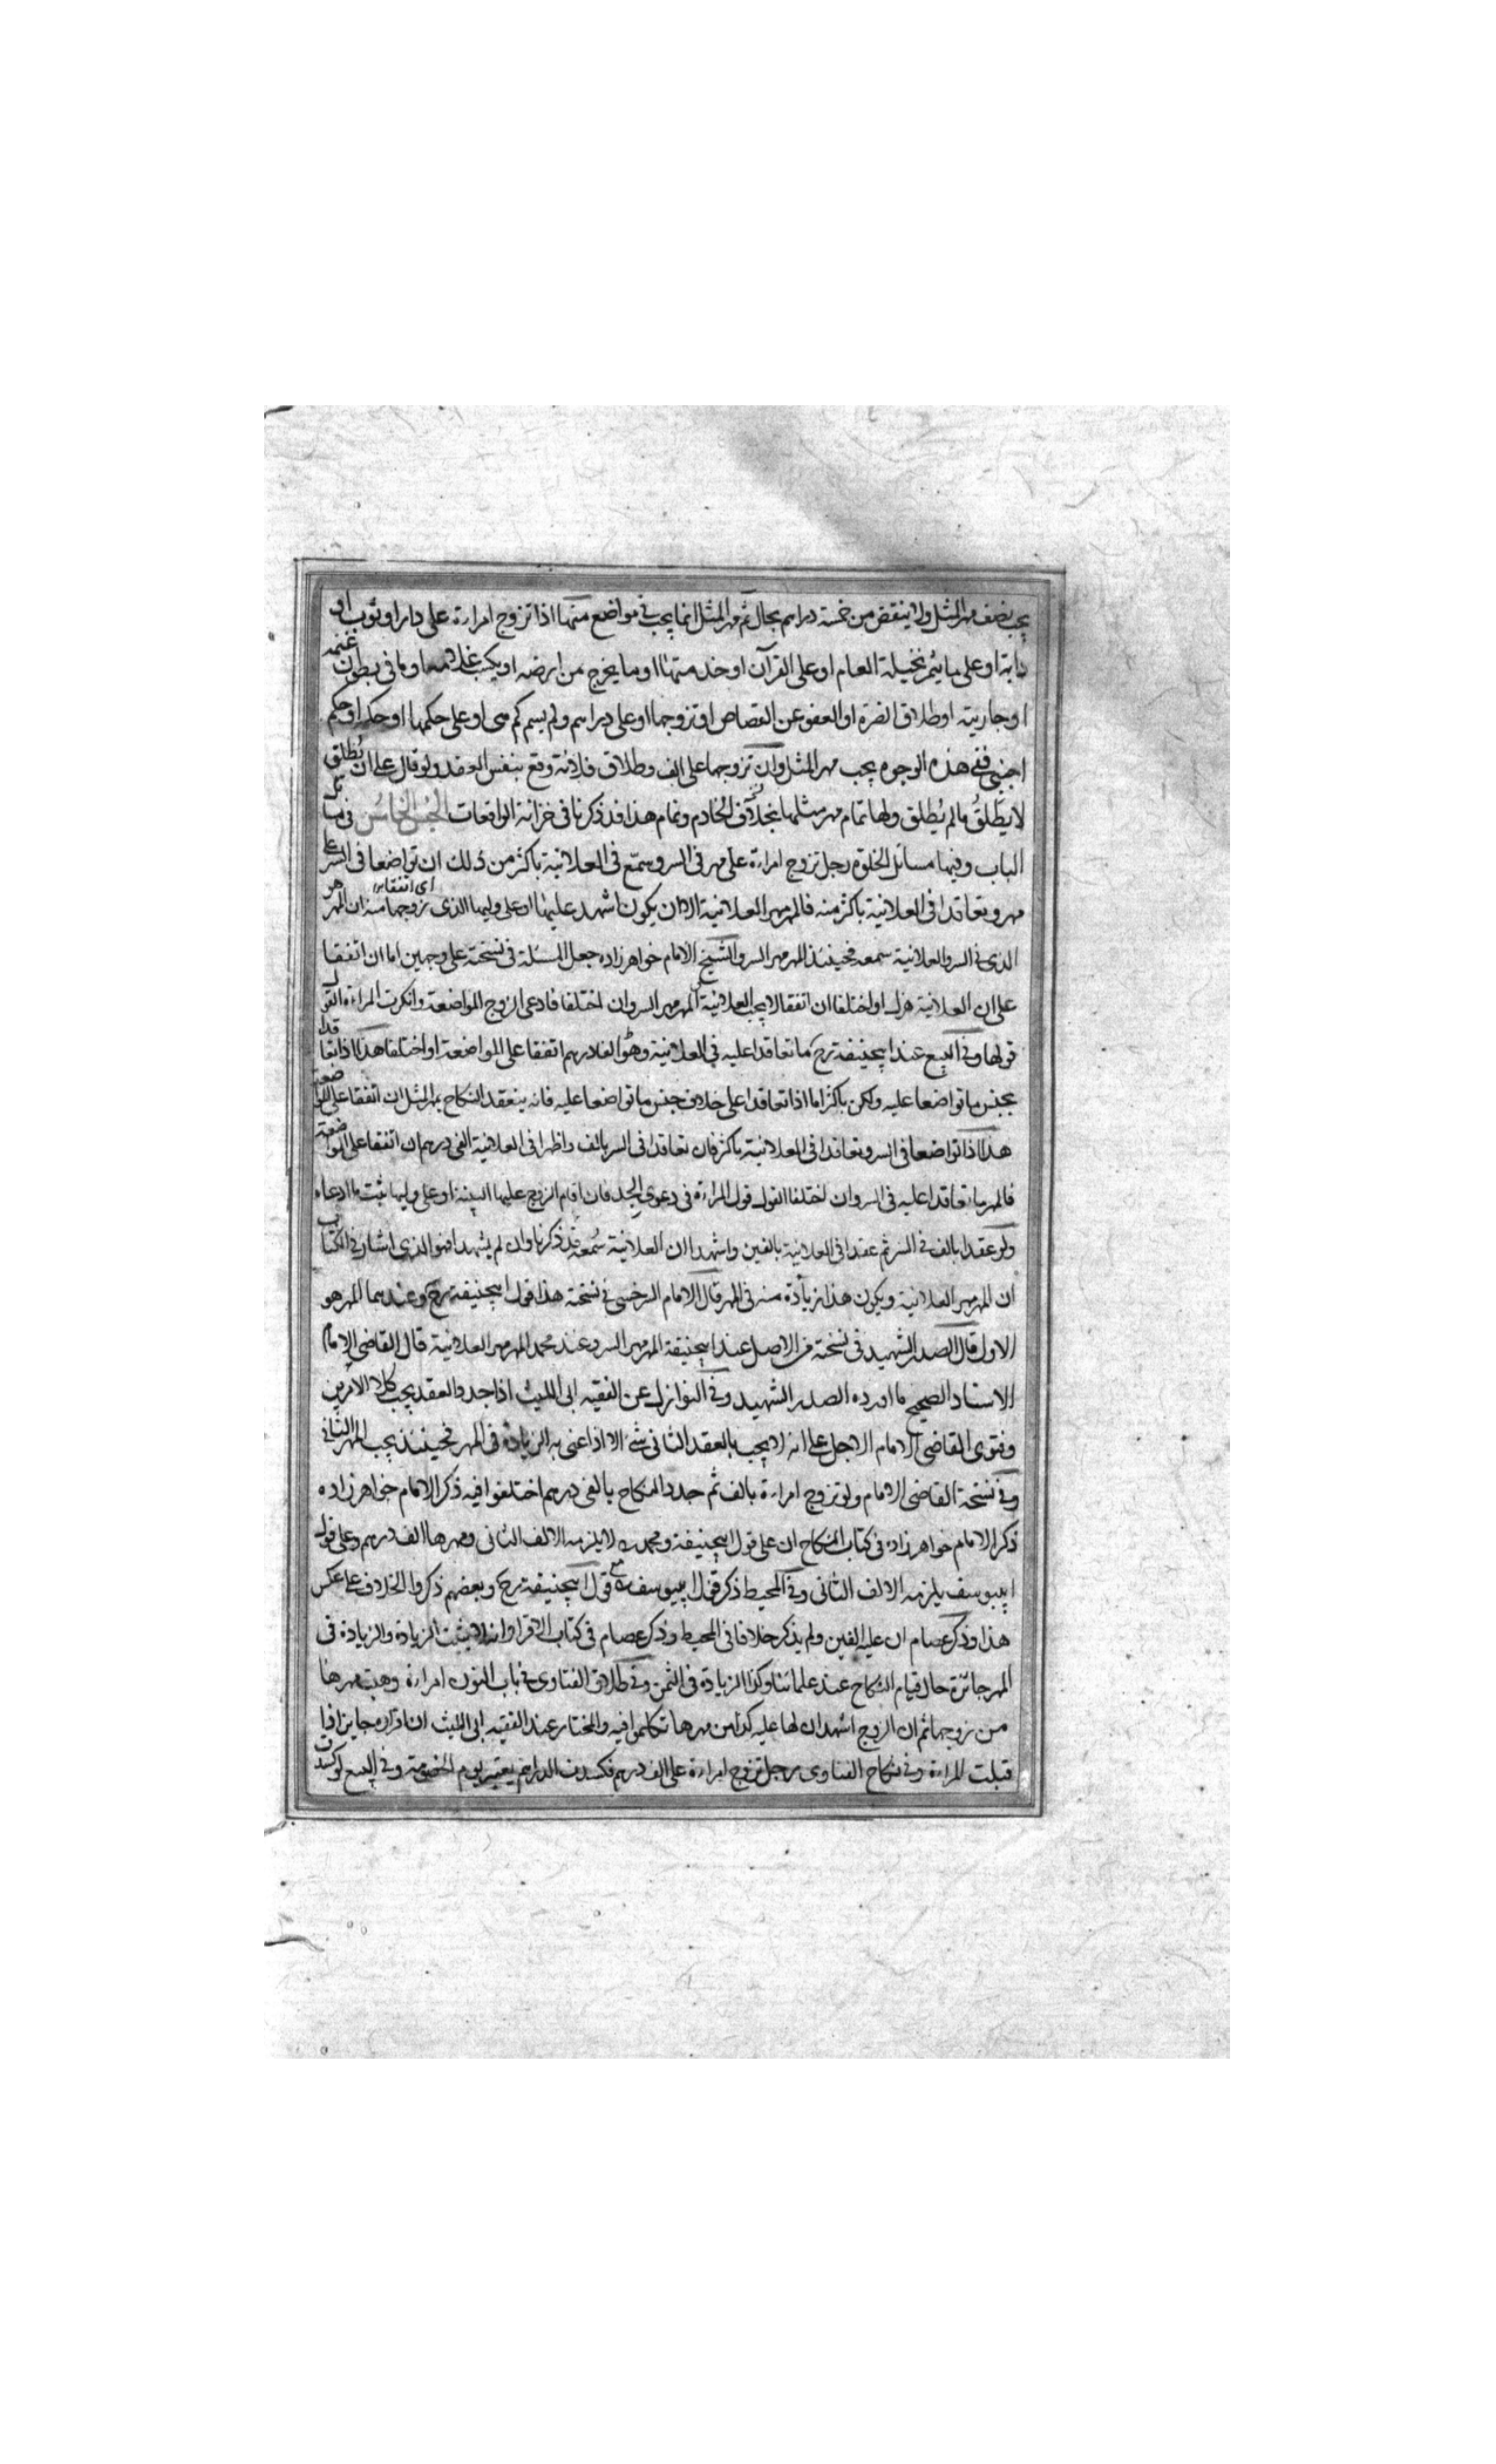 يجب نصف مهر المثل ولا ينقض من خمسة دراهم بحال ثم مهر المثل انما يجب في مواضع منها اذا تزوج امراءة على دار او ثوب او
دابة او على ما يثمر نخيله العام او على القرآن او خدمتها او ما يخرج من ارضه او يكسب غلامه او ما في بطون غنمه
او جاريته او طلاق الضرة او العفو عن القصاص او تزوجها او على دراهم ولم يسم كم هي او على حكمها او حكمه او حكم
اجنبي ففي هذه الوجوه يجب مهر المثل وان تزوجها على الف وطلاق فلانة وقع بنفس العقد ولو قال على ان يطلق
لا يطلق ما لم يطلق ولها تمام مهر مثلها بخلاف الخادم وتمام هذا قد ذكرنا في خزانة الواقعات الجنس الخامس في
الباب وفيها مسائل الخلوة رجل تزوج امراءة على مهر في السر وسمع في العلانية باكثر من ذلك ان تواضعا في السر على
مهر وتعاقدا في العلانية باكثر منه فالمهر مهر العلانية الا ان يكون اشهد عليها او على وليها الذي زوجها منه ان المهر هو
اي اتفقا
الذي في السر والعلانية سمعه فحينئذ المهر مهر السر والشيخ الامام خواهرزاده جعل المسئلة في نسخته على وجهين اما ان اتفقا
على ان العلانية هزل او اختلفا ان اتفقا لا يجب العلانية المهر مهر السر وان اختلفا فادعى الزوج المواضعة وانكرت المراءة القول
قولها وفي البيع عند ابيحنيفة رح ما تعاقدا عليه في العلانية وهو الفا درهم اتفقا على المواضعة او اختلفا هذا اذا تعاقدا
بجنس ما تواضعا عليه ولكن باكثر اما اذا تعاقدا على خلاف جنس ما تواضعا عليه فانه ينعقد النكاح بمهر المثل ان اتفقا على المواضعة
هذا اذا تواضعا في السر وتعاقدا في العلانية باكثر فان تعاقدا في السر بالف واظهرا في العلانية الفي درهم ان اتفقا على المواضعة
فالمهر ما تعاقدا عليه في السر وان اختلفا القول قول المراءة في دعوى الجد فان اقام الزوج عليها البينة او على وليها يثبت ما ادعاه
ولو عقدا بالف في السر ثم عقدا في العلانية بالفين واشهدا ان العلانية سمعة قد ذكرنا وان لم يشهدا فهو الذي اشار في الكتاب
ان المهر مهر العلانية ويكون هذا زيادة منه في المهر قال الامام السرخسي في نسخته هذا قول ابيحنيفة رح وعندهما المهر هو
الاول قال الصدر الشهيد في نسخته من الاصل عند ابيحنيفة المهر مهر السر وعند محمد المهر مهر العلانية قال القاضي الامام
الاستاد الصحيح ما اورده الصدر الشهيد وفي النوازل عن الفقيه ابي الليث اذا جدد العقد يجب كلا الامرين
وفتوى القاضي الامام الاجل على انه لا يجب بالعقد الثاني شيء الا اذا عنى به الزيادة في المهر فحينئذ يجب المهر الثاني
وفي نسخة القاضي الامام ولو تزوج امراءة بالف ثم جدد النكاح بالفي درهم اختلفوا فيه ذكر الامام خواهرزاده
ذكر الامام خواهرزاده في كتاب النكاح ان على قول ابيحنيفة ومحمد لا يلزمه الالف الثاني ومهرها الف درهم وعلى قول
ابييوسف يلزمه الالف الثاني وفي المحيط ذكر قول ابييوسف مع قول ابيحنيفة رح وبعضهم ذكروا الخلاف على عكس
هذا وذكر عصام ان عليه الفين ولم يذكر خلافا في المحيط وذكر عصام في كتاب الاقرار انه لا يثبت الزيادة والزيادة في
المهر جائزة حال قيام النكاح عند علمائنا وكذا الزيادة في الثمن وفي طلاق الفتاوى في باب النون امراءة وهبت مهرها
من زوجها ثم ان الزوج اشهد ان لها عليه كذا من مهرها تكلموا فيه والمختار عند الفقيه ابي الليث ان اقراره جايز اذا
قبلت المراءة وفي نكاح الفتاوى رجل تزوج امراءة على الف درهم فكسدت الدراهم يعتبر يوم الخصومة وفي البيع لو كسدت